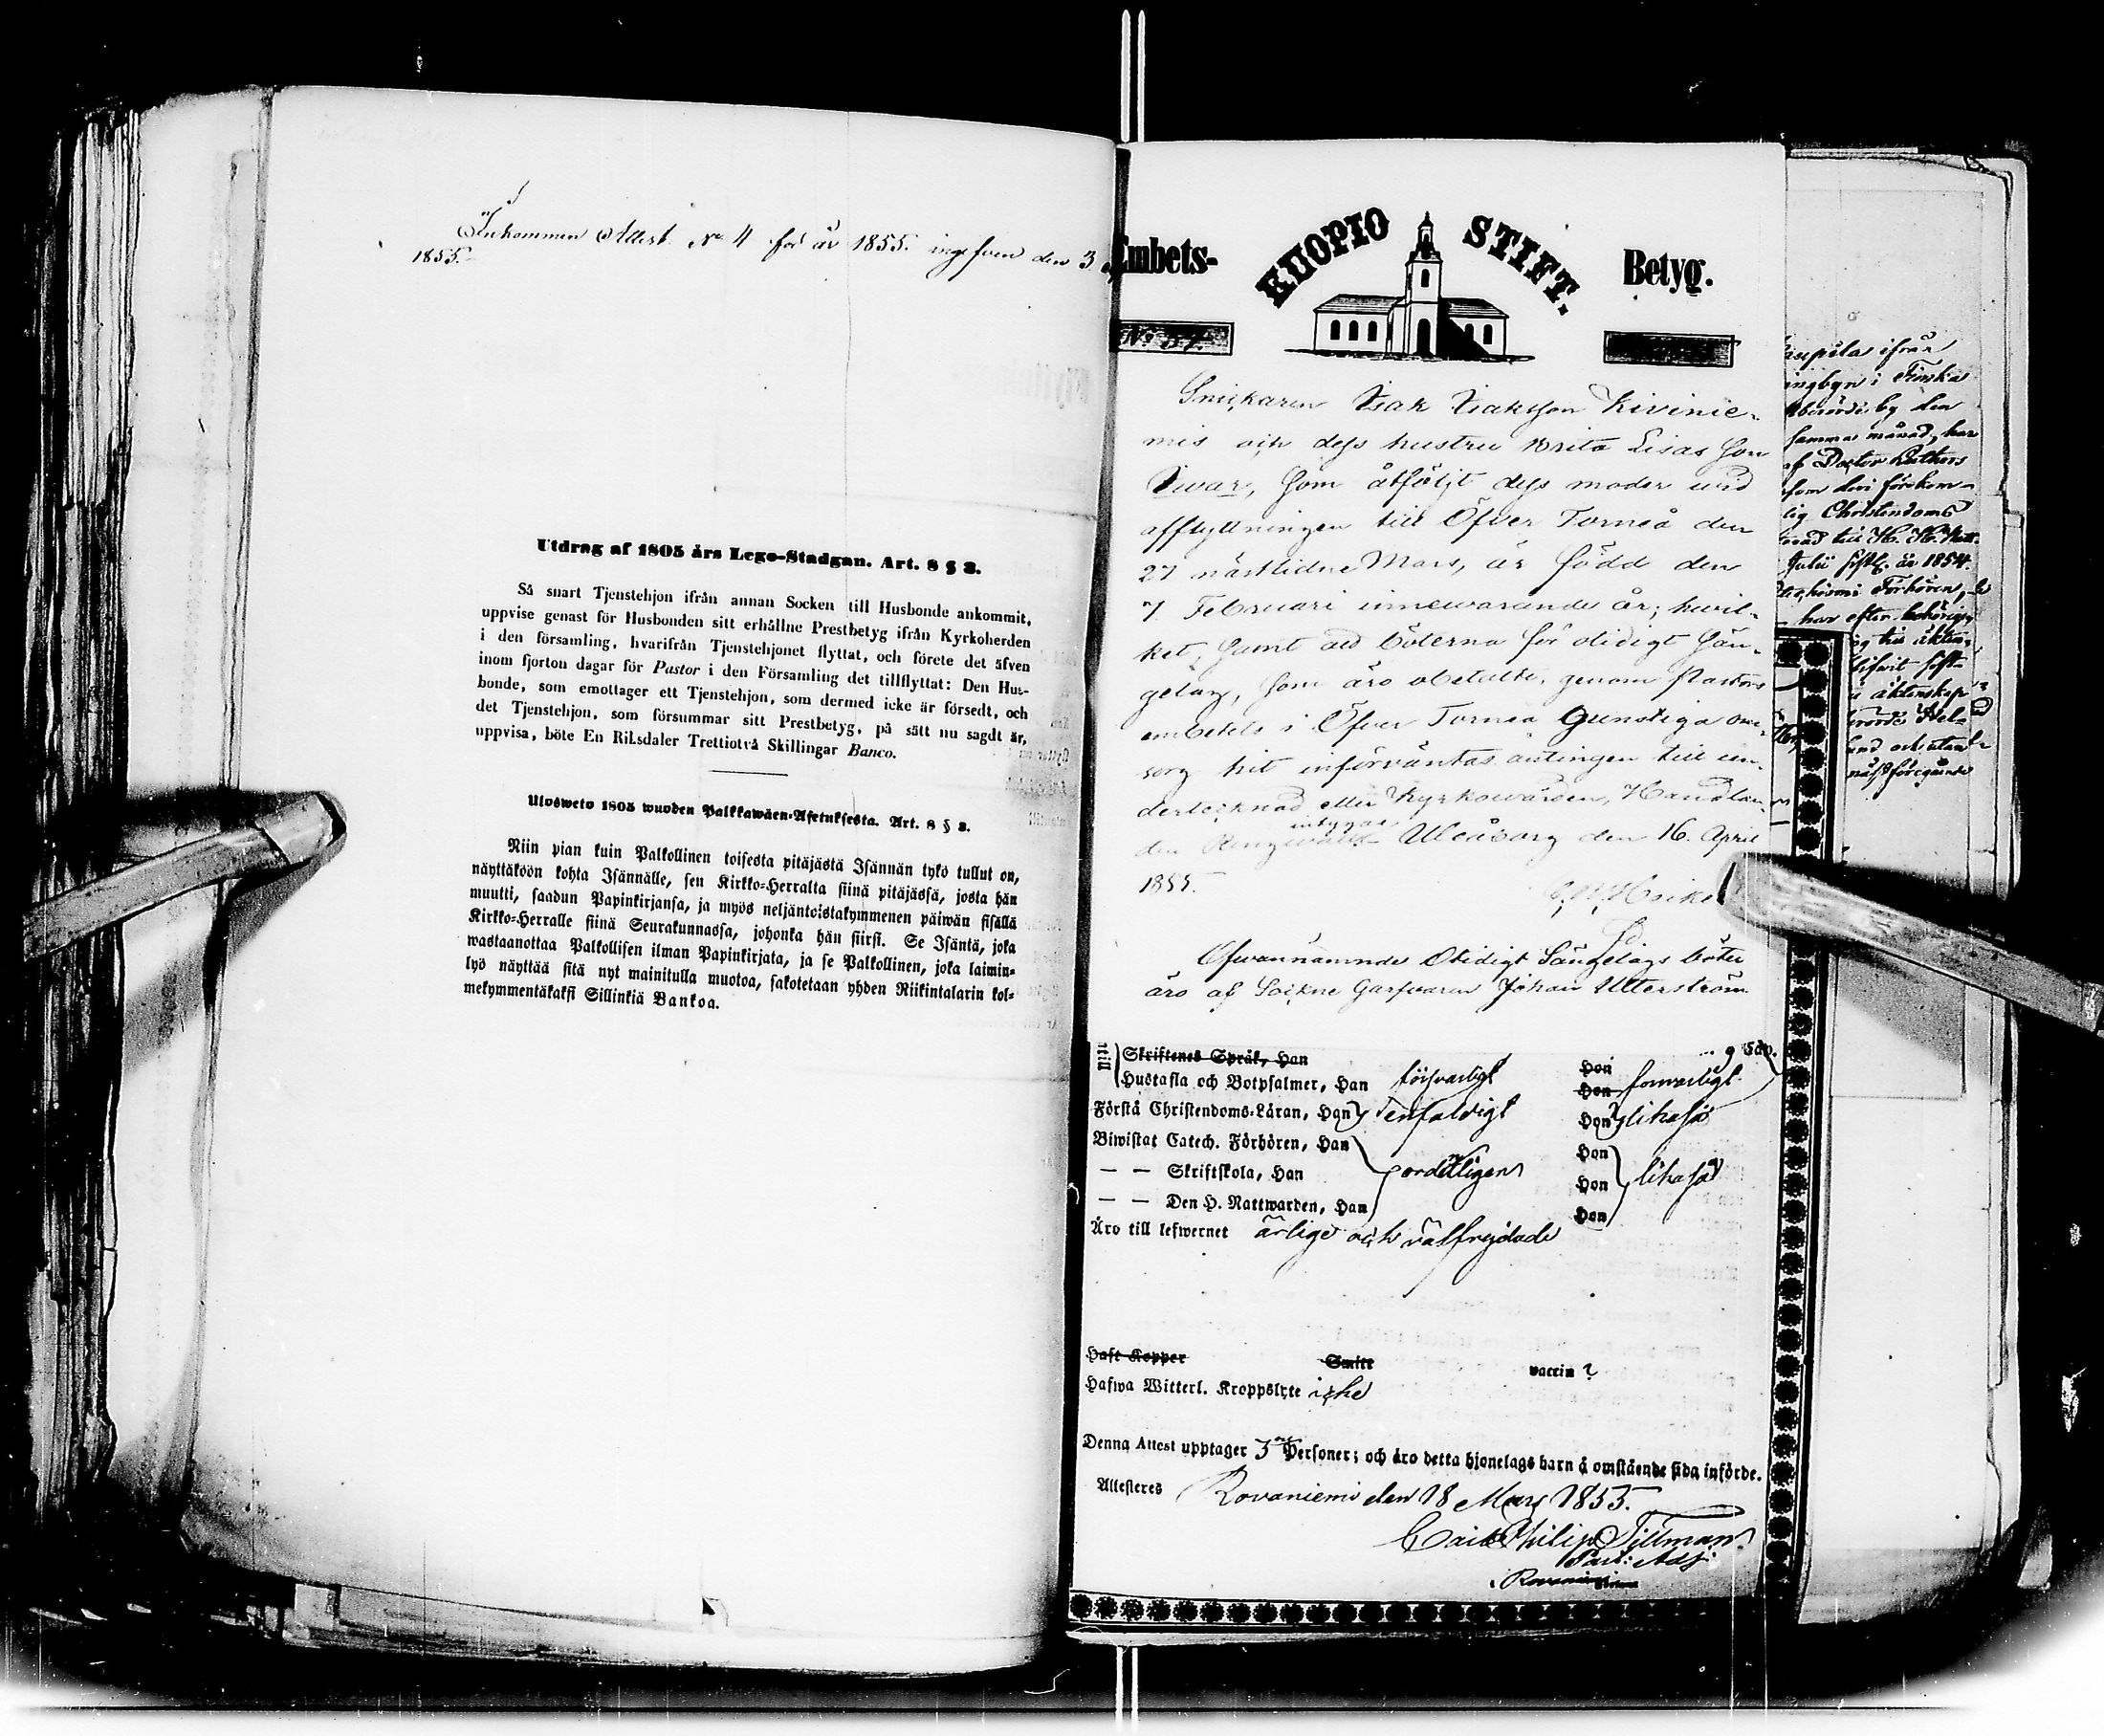 Inkommen Attest. No 4 för år 1855. ingifven den 3
1855.
Utdrag af 1805 års Lego-Stadgan. Art. 8 § 3.
Så snart Tjenstehjon ifrån annan Socken till Husbonde ankommit,
uppvise genast för Husbonden sitt erhållne Prestbetyg ifrån Kyrkoherden
i den församling, hvarifrån Tjenstehjonet flyttat, och förete det äfven
inom fjorton dagar för Pastor i den Församling det tillflyttat: Den Hus-
bonde, som emottager ett Tjenstehjon, som dermed icke är försedt, och
det Tjenstehjon, som försummar sitt Prestbetyg, på sätt nu sagdt är,
uppvisa, böte En Riksdaler Trettiotvå Skillingar Banco.
Ulosweto 1805 wuoden Palkkawäen-Asetuksesta. Art. 8 § 3.
Niin pian kuin Palkollinen toisesta pitäjästä Isännän tykö tullut on,
näyttäköön kohta Isännälle, sen Kirkko-Herralta siinä pitäjässä, josta hän
muutti, saadun Papinkirjansa, ja myös neljäntoistakymmenen päiwän sisällä
Kirkko-Herralle siinä Seurakunnassa, johonka hän siirsi. Se Isäntä, joka
wastaanottaa Palkollisen ilman Papinkirjata, ja se Palkollinen, joka laimin-
lyö näyttää sitä nyt mainitulla muotoa, sakotetaan yhden Riikintalarin kol-
mekymmentäkaksi Sillinkiä Bankoa.
Embets- KUOPIO STIFT. Betyg.
No
Snickaren Isak Isaksson Kivinie-
mis och dess hustru Brita Lisas son
Ivar, som åtföljt dess moder wid
afflyttningen till Öfver Torneå den
27 nästlidne Mars, är född den
7. Februari innewarande år; hwil-
ket, samt att böterna för otidigt sän-
gelag, som äro obetalte, genom Pastors
embetets i Öfver Torneå gunstiga om-
sorg hit införväntas antingen till un-
dertecknad eller Kyrkowärden, Handlan-
den intygas Uleåborg den 16. April
1855.
Ofwannämnde Otidigt Sängelags böter
äro af Sockne Garfvaren Johan Utterström
Skriftenes Språk, Han Hon
Hustafla och Botpsalmer, Han försvarligt Hon försvarligt
Förstå Christendoms-Läran, Han enfaldigt Hon likaså
Biwistat Catech. Förhören, Han Hon
— — Skriftskola, Han ordentligen Hon likaså
— — Den H. Nattwarden, Han Hon
Äro till lefwernet ärlige och välfrejdade
Haft Koppor Smitt vaccin ?
Hafwa Witterl. Kroppslyte icke
Denna Attest upptager 3 Personer; och äro detta hjonelags barn å omstående sida införde.
Attesteras Rovaniemi den 18 Mars 1855.
Carl Philip Tillman
Past: Adj:
Rovaniemi
ifrån
i Finska
by den
samma månad, har
af Doctor Luthers
Christendoms
Julii år 1854.
Förhören,
har efter behörig
äktenskap